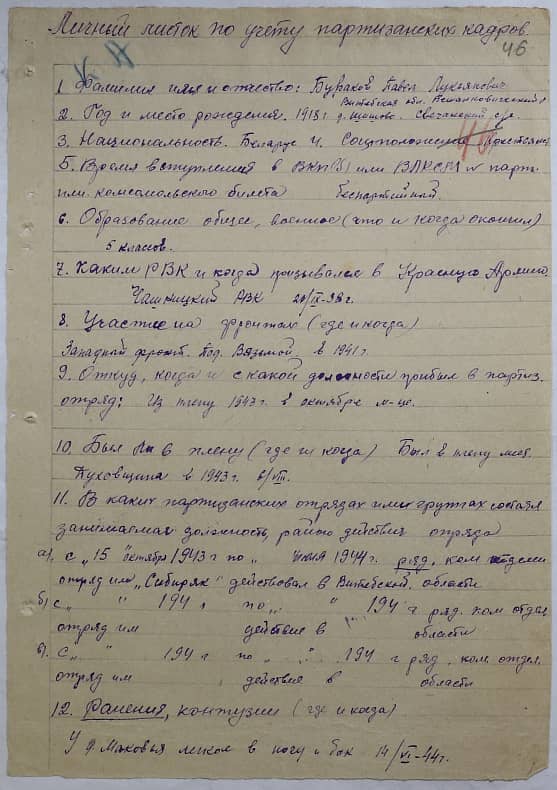 Личный листок по учету партизанских кадров.
46
1. Фамилия имя и отчество: Бураков Павел Лукьянович
Витебская обл.
2. Год и место рождения. 1918 г. д.
3. Национальность. Беларус 4. Соцположение Крестьян.
5. Время вступления в ВКП(б) или ВЛКСМ № парт.
или комсомольского билета беспартийный.
6. Образование общее, военное (что и когда окончил)
5 классов.
7. Каким РВК и когда призывался в Красную Армию.
Чашницкий РВК 20/IX-38г.
8. Участие на фронтах (где и когда)
Западный фронт. Под. Вязьмой. в 1941 г.
9. Откуд, когда и с какой должности прибыл в партиз.
отряд: Из плену 1943 г. в октябре м-це.
10. Был ли в плену (где и когда) Был в плену мест.
Духовщина в 1943 г. 6/VIII.
11. В каких партизанских отрядах или группах состоял
занимаемая должность, район действия отряда
а). с "15" октября 1943 г по " июня 1944 г. ряд, ком отделен
отряд им "Сибиряк" действовал в Витебской области
б) с " " 194 г по " " 194 г ряд. ком отдел
отряд им действие в области
в). с " " 194 г по " " 194 г ряд. ком. отдел.
отряд им действие в области
12. Ранения, контузии (где и когда)
У д Маковья легком в ногу и бок 14/VI-44г.